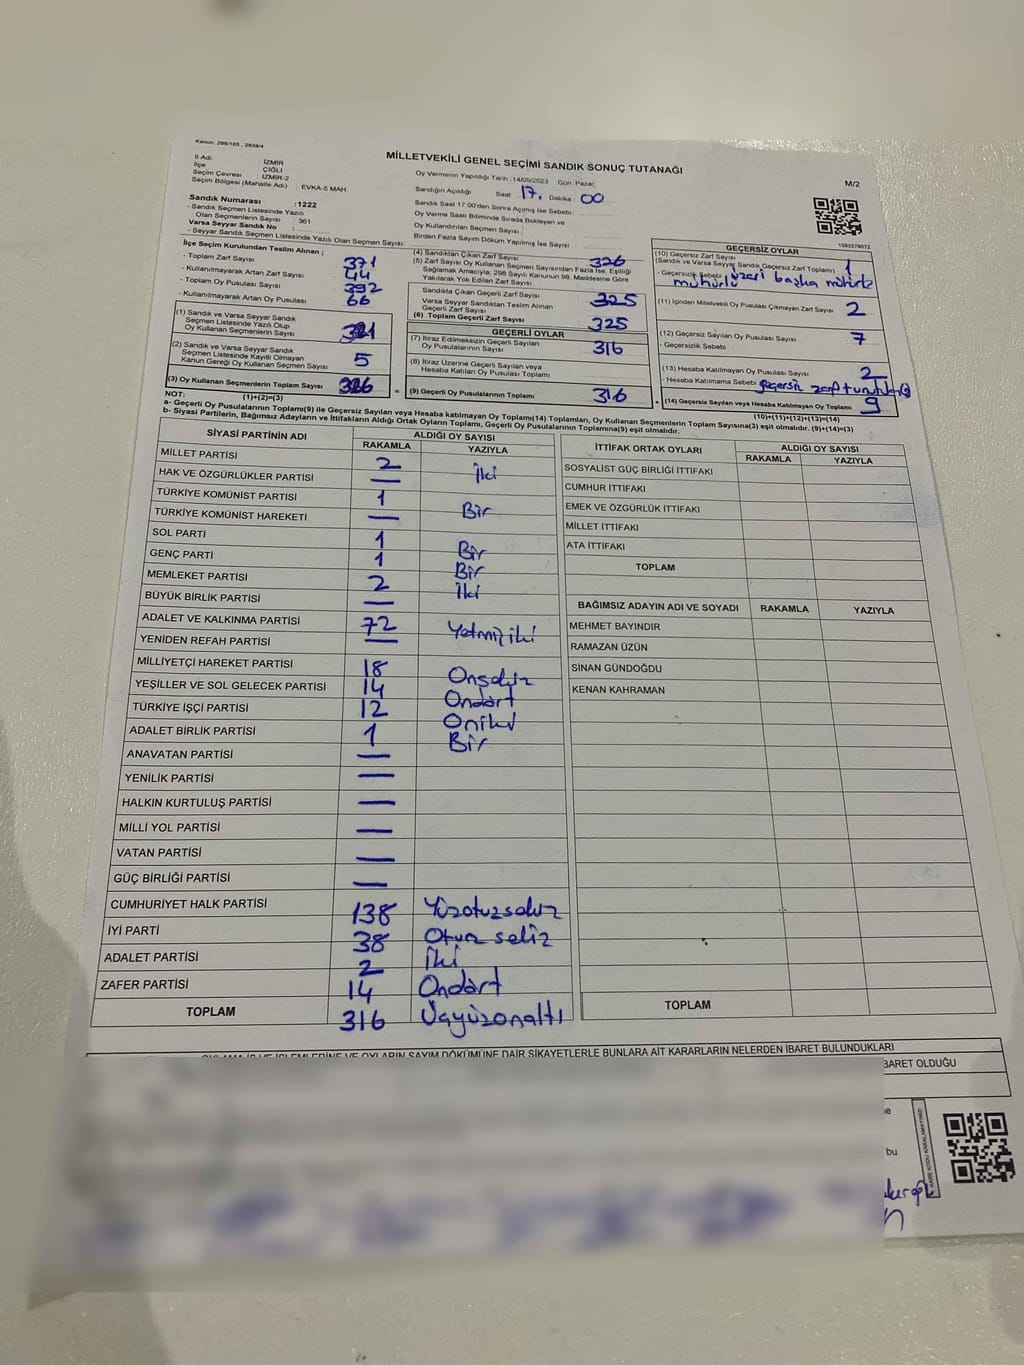 Kanun: 298/105 , 2839/4
MİLLETVEKİLİ GENEL SEÇİMİ SANDIK SONUÇ TUTANAĞI
M/2
İl Adı : İZMİR
İlçe : ÇİĞLİ
Seçim Çevresi : İZMİR-2
Seçim Bölgesi (Mahalle Adı) : EVKA-5 MAH.
Sandık Numarası :1222
- Sandık Seçmen Listesinde Yazılı
Olan Seçmenlerin Sayısı : 361
Varsa Seyyar Sandık No :
- Seyyar Sandık Seçmen Listesinde Yazılı Olan Seçmen Sayısı:
Oy Vermenin Yapıldığı Tarih :14/05/2023 Gün: Pazar,
Sandığın Açıldığı Saat: 17. Dakika 00
Sandık Saat 17:00'den Sonra Açılmış İse Sebebi :
Oy Verme Saati Bitiminde Sırada Bekleyen ve
Oy Kullandırılan Seçmen Sayısı :
Birden Fazla Sayım Döküm Yapılmış İse Sayısı :
1083579072
İlçe Seçim Kurulundan Teslim Alınan ;
- Toplam Zarf Sayısı 371
- Kullanılmayarak Artan Zarf Sayısı 44
- Toplam Oy Pusulası Sayısı 392
- Kullanılmayarak Artan Oy Pusulası 66
(1) Sandık ve Varsa Seyyar Sandık
Seçmen Listesinde Yazılı Olup
Oy Kullanan Seçmenlerin Sayısı 321
(2) Sandık ve Varsa Seyyar Sandık
Seçmen Listesinde Kayıtlı Olmayan
Kanun Gereği Oy Kullanan Seçmen Sayısı 5
(3) Oy Kullanan Seçmenlerin Toplam Sayısı 326
(1)+(2)=(3)
(4) Sandıktan Çıkan Zarf Sayısı 326
(5) Zarf Sayısı Oy Kullanan Seçmen Sayısından Fazla İse, Eşitliği
Sağlamak Amacıyla, 298 Sayılı Kanunun 98. Maddesine Göre
Yakılarak Yok Edilen Zarf Sayısı
Sandıkta Çıkan Geçerli Zarf Sayısı 325
Varsa Seyyar Sandıktan Teslim Alınan
Geçerli Zarf Sayısı
(6) Toplam Geçerli Zarf Sayısı 325
GEÇERLİ OYLAR
(7) İtiraz Edilmeksizin Geçerli Sayılan
Oy Pusulalarının Sayısı 316
(8) İtiraz Üzerine Geçerli Sayılan veya
Hesaba Katılan Oy Pusulası Toplamı
= (9) Geçerli Oy Pusulalarının Toplamı 316
GEÇERSİZ OYLAR
(10) Geçersiz Zarf Sayısı
(Sandık ve Varsa Seyyar Sandık Geçersiz Zarf Toplamı) 1
- Geçersizlik Sebebi üzeri başka mühürle
mühürlü
(11) İçinden Milletvekili Oy Pusulası Çıkmayan Zarf Sayısı 2
(12) Geçersiz Sayılan Oy Pusulası Sayısı 7
- Geçersizlik Sebebi
(13) Hesaba Katılmayan Oy Pusulası Sayısı 2
- Hesaba Katılmama Sebebi geçersiz zarf
+ (14) Geçersiz Sayılan veya Hesaba Katılmayan Oy Toplamı 9
(10)+(11)+(12)+(13)=(14)
NOT:
a- Geçerli Oy Pusulalarının Toplamı(9) ile Geçersiz Sayılan veya Hesaba katılmayan Oy Toplamı(14) Toplamları, Oy Kullanan Seçmenlerin Toplam Sayısına(3) eşit olmalıdır. (9)+(14)=(3)
b- Siyasi Partilerin, Bağımsız Adayların ve İttifakların Aldığı Ortak Oyların Toplamı, Geçerli Oy Pusulalarının Toplamına(9) eşit olmalıdır.
SİYASİ PARTİNİN ADI ALDIĞI OY SAYISI
RAKAMLA YAZIYLA
MİLLET PARTİSİ 2 İki
HAK VE ÖZGÜRLÜKLER PARTİSİ —
TÜRKİYE KOMÜNİST PARTİSİ 1 Bir
TÜRKİYE KOMÜNİST HAREKETİ —
SOL PARTİ 1 Bir
GENÇ PARTİ 1 Bir
MEMLEKET PARTİSİ 2 İki
BÜYÜK BİRLİK PARTİSİ —
ADALET VE KALKINMA PARTİSİ 72 Yetmişiki
YENİDEN REFAH PARTİSİ —
MİLLİYETÇİ HAREKET PARTİSİ 18 Onsekiz
YEŞİLLER VE SOL GELECEK PARTİSİ 14 Ondört
TÜRKİYE İŞÇİ PARTİSİ 12 Oniki
ADALET BİRLİK PARTİSİ 1 Bir
ANAVATAN PARTİSİ —
YENİLİK PARTİSİ —
HALKIN KURTULUŞ PARTİSİ —
MİLLİ YOL PARTİSİ —
VATAN PARTİSİ —
GÜÇ BİRLİĞİ PARTİSİ —
CUMHURİYET HALK PARTİSİ 138 Yüzotuzsekiz
İYİ PARTİ 38 Otuz sekiz
ADALET PARTİSİ 2 İki
ZAFER PARTİSİ 14 Ondört
TOPLAM 316 Üçyüzonaltı
İTTİFAK ORTAK OYLARI ALDIĞI OY SAYISI
RAKAMLA YAZIYLA
SOSYALİST GÜÇ BİRLİĞİ İTTİFAKI
CUMHUR İTTİFAKI
EMEK VE ÖZGÜRLÜK İTTİFAKI
MİLLET İTTİFAKI
ATA İTTİFAKI
TOPLAM
BAĞIMSIZ ADAYIN ADI VE SOYADI RAKAMLA YAZIYLA
MEHMET BAYINDIR
RAMAZAN ÜZÜN
SİNAN GÜNDOĞDU
KENAN KAHRAMAN
TOPLAM
OYLAMA İŞ VE İŞLEMLERİNE VE OYLARIN SAYIM DÖKÜMÜNE DAİR ŞİKAYETLERLE BUNLARA AİT KARARLARIN NELERDEN İBARET BULUNDUKLARI
BARET OLDUĞU
bu
KARE KODU KARALAMAYINIZ!